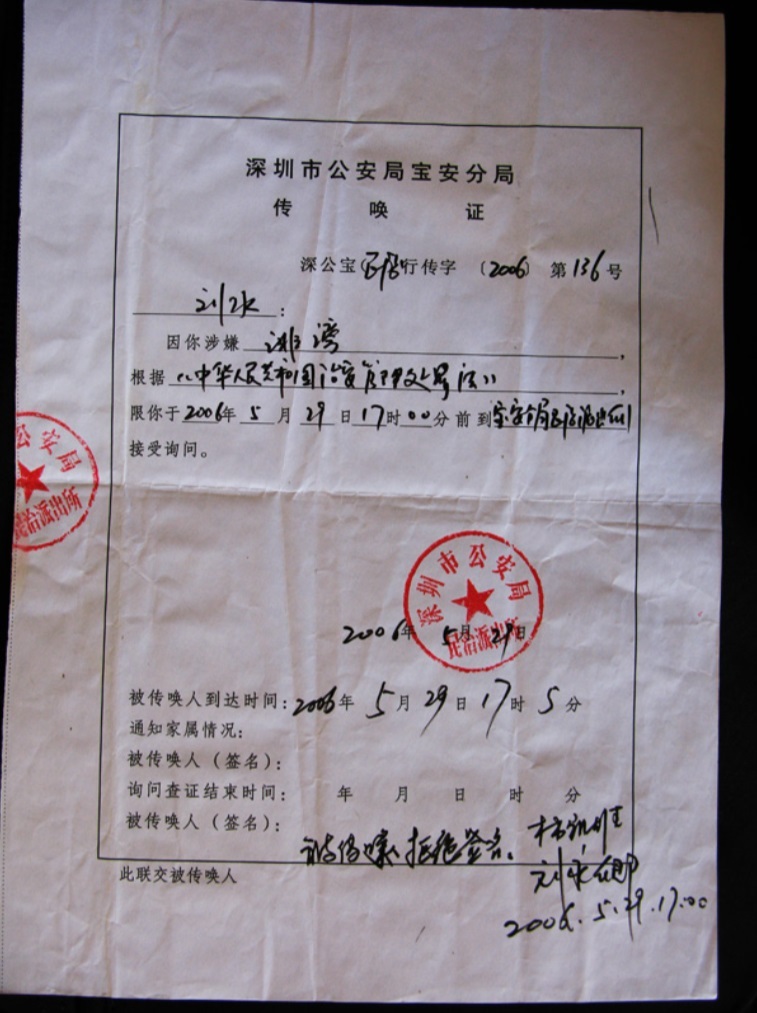 深圳市公安局宝安分局
传唤证
深公宝(民治)行传字〔2006〕第136号
刘水:
因你涉嫌,
根据《中华人民共和国治安管理处罚法》,
限你于2006年5月29日17时00分前到宝安分局民治派出所
接受询问。
公安局
民治派出所
深圳市公安局
民治派出所
2006年5月29日
被传唤人到达时间:2006年5月29日17时5分
通知家属情况:
被传唤人(签名):
询问查证结束时间: 年 月 日 时 分
被传唤人(签名):
被传唤人拒绝签名。
此联交被传唤人
2006.5.29.17:00